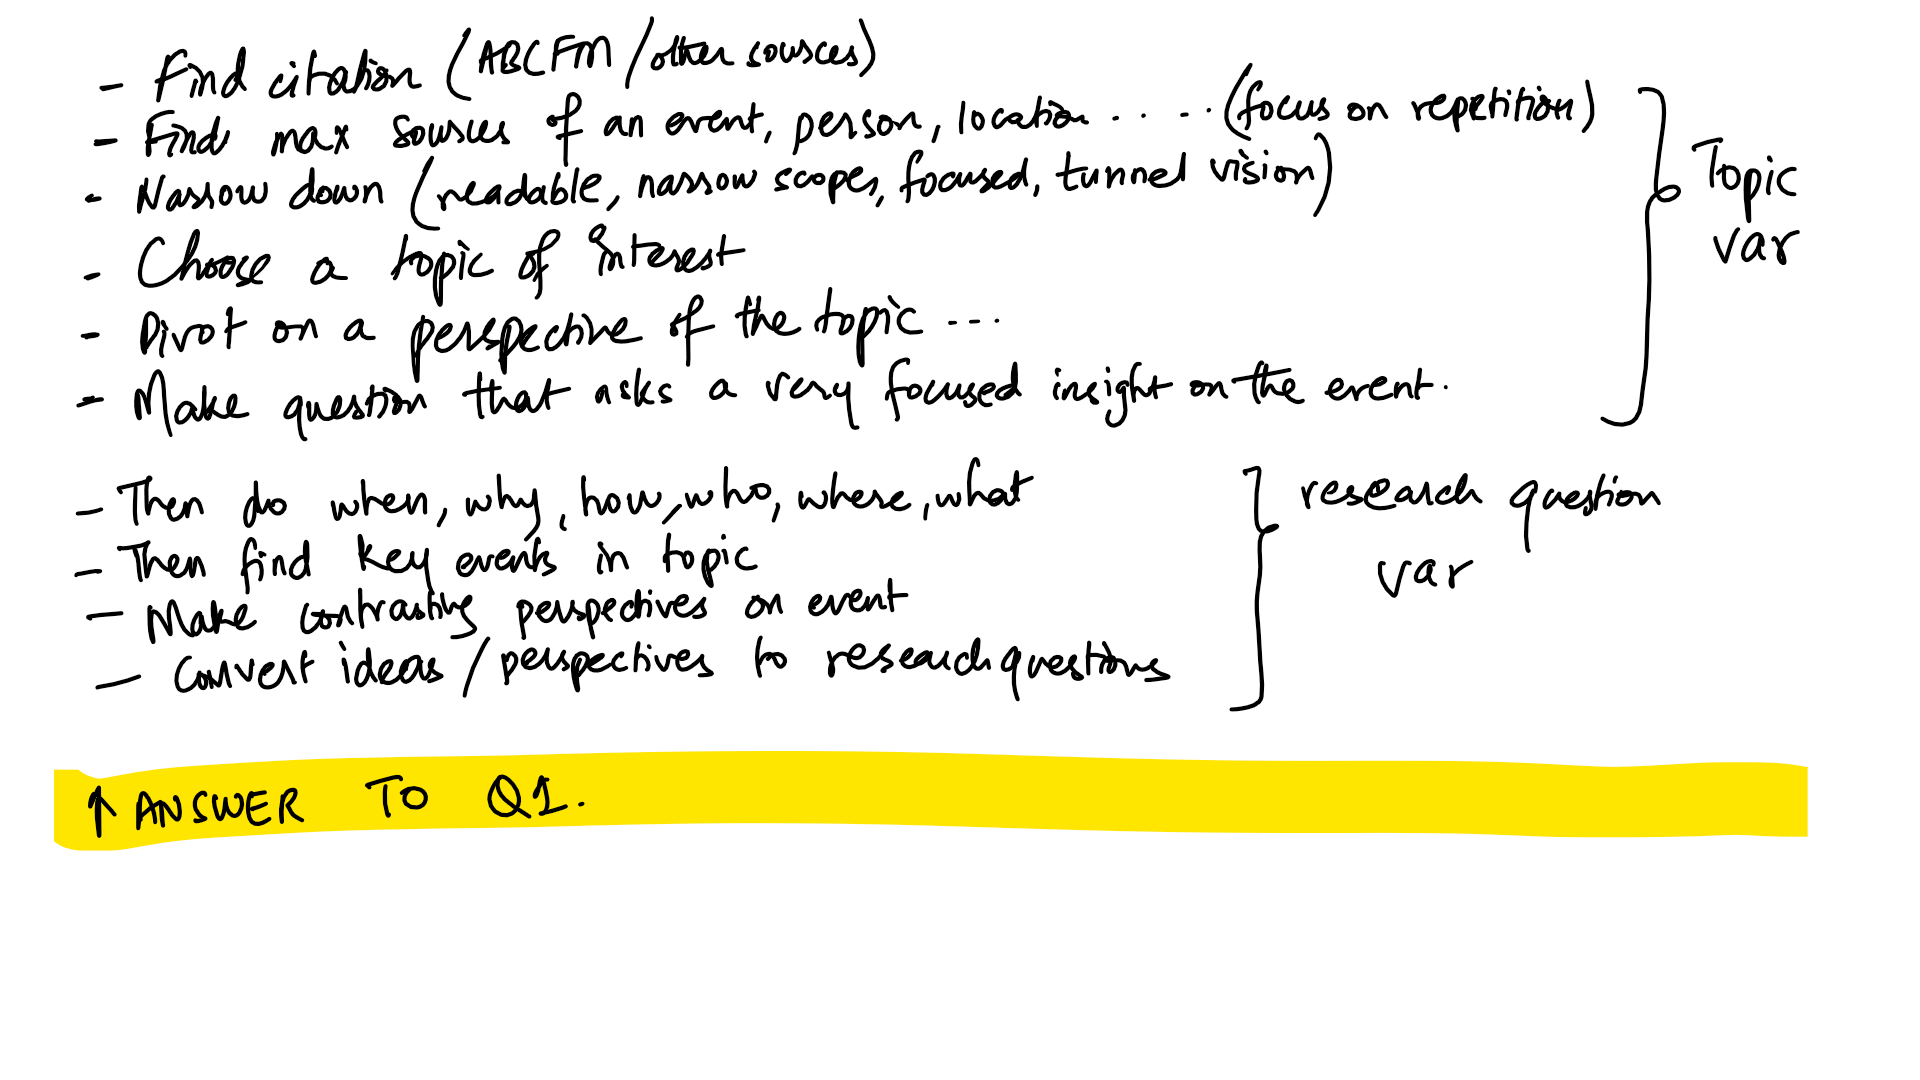 - Find citation (ABCFM / other sources)
- Find max sources of an event, person, location ..... (focus on repetition)
- Narrow down (readable, narrow scope, focused, tunnel vision)
- Choose a topic of interest
- Pivot on a perspective of the topic ...
- Make question that asks a very focused insight on the event.
Topic
var
- Then do when, why, how, who, where, what
- Then find key events in topic
- Make contrasting perspectives on event
- Convert ideas / perspectives to research questions
research question
var
↑ ANSWER TO Q1.